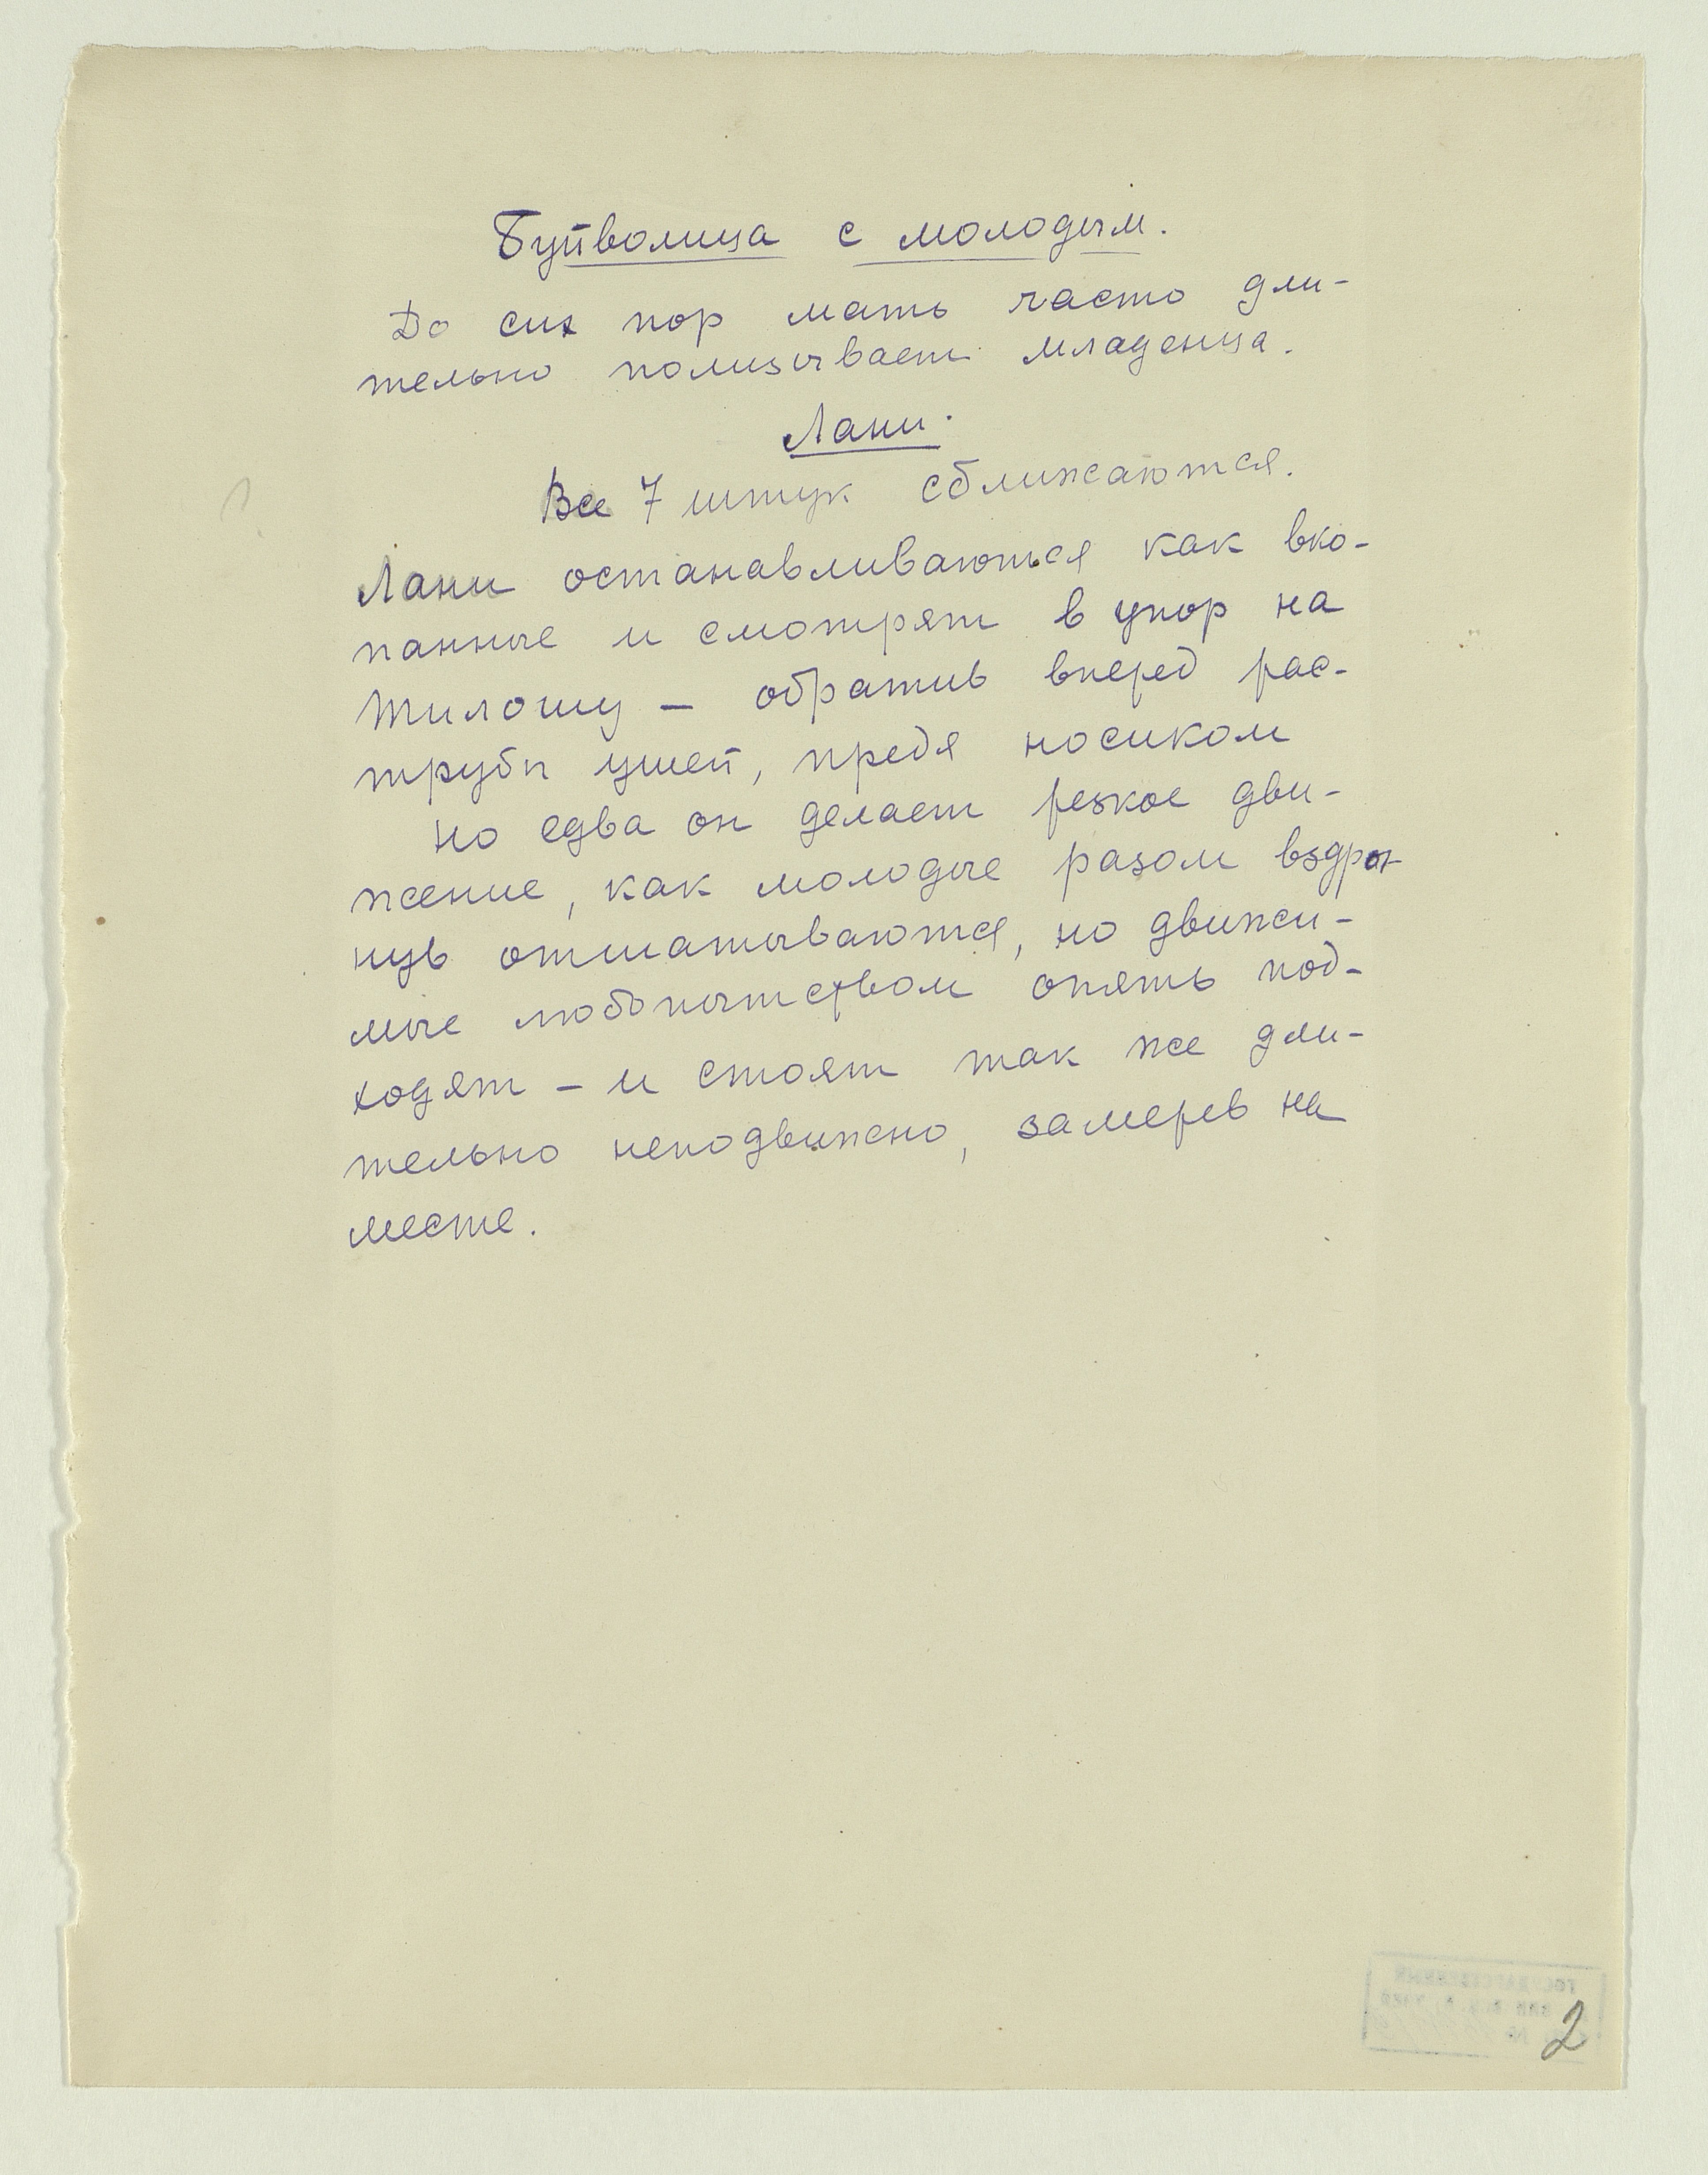 Буйволица с молодым.
До сих пор мать часто дли-
тельно полизывает младенца.
Лани.
Все 7 штук сближаются.
Лани останавливаються как вко-
панные и смотрят в упор на
Тилошу – обратив вперед рас-
трубы ушей, предя носиком
но едва он делает резкое дви-
жение, как молодые разом вздрог-
нув отшатываются, но движи-
мые любопытством опять под-
ходят – и стоят так же дли-
тельно неподвижно, замерев на
месте.
2